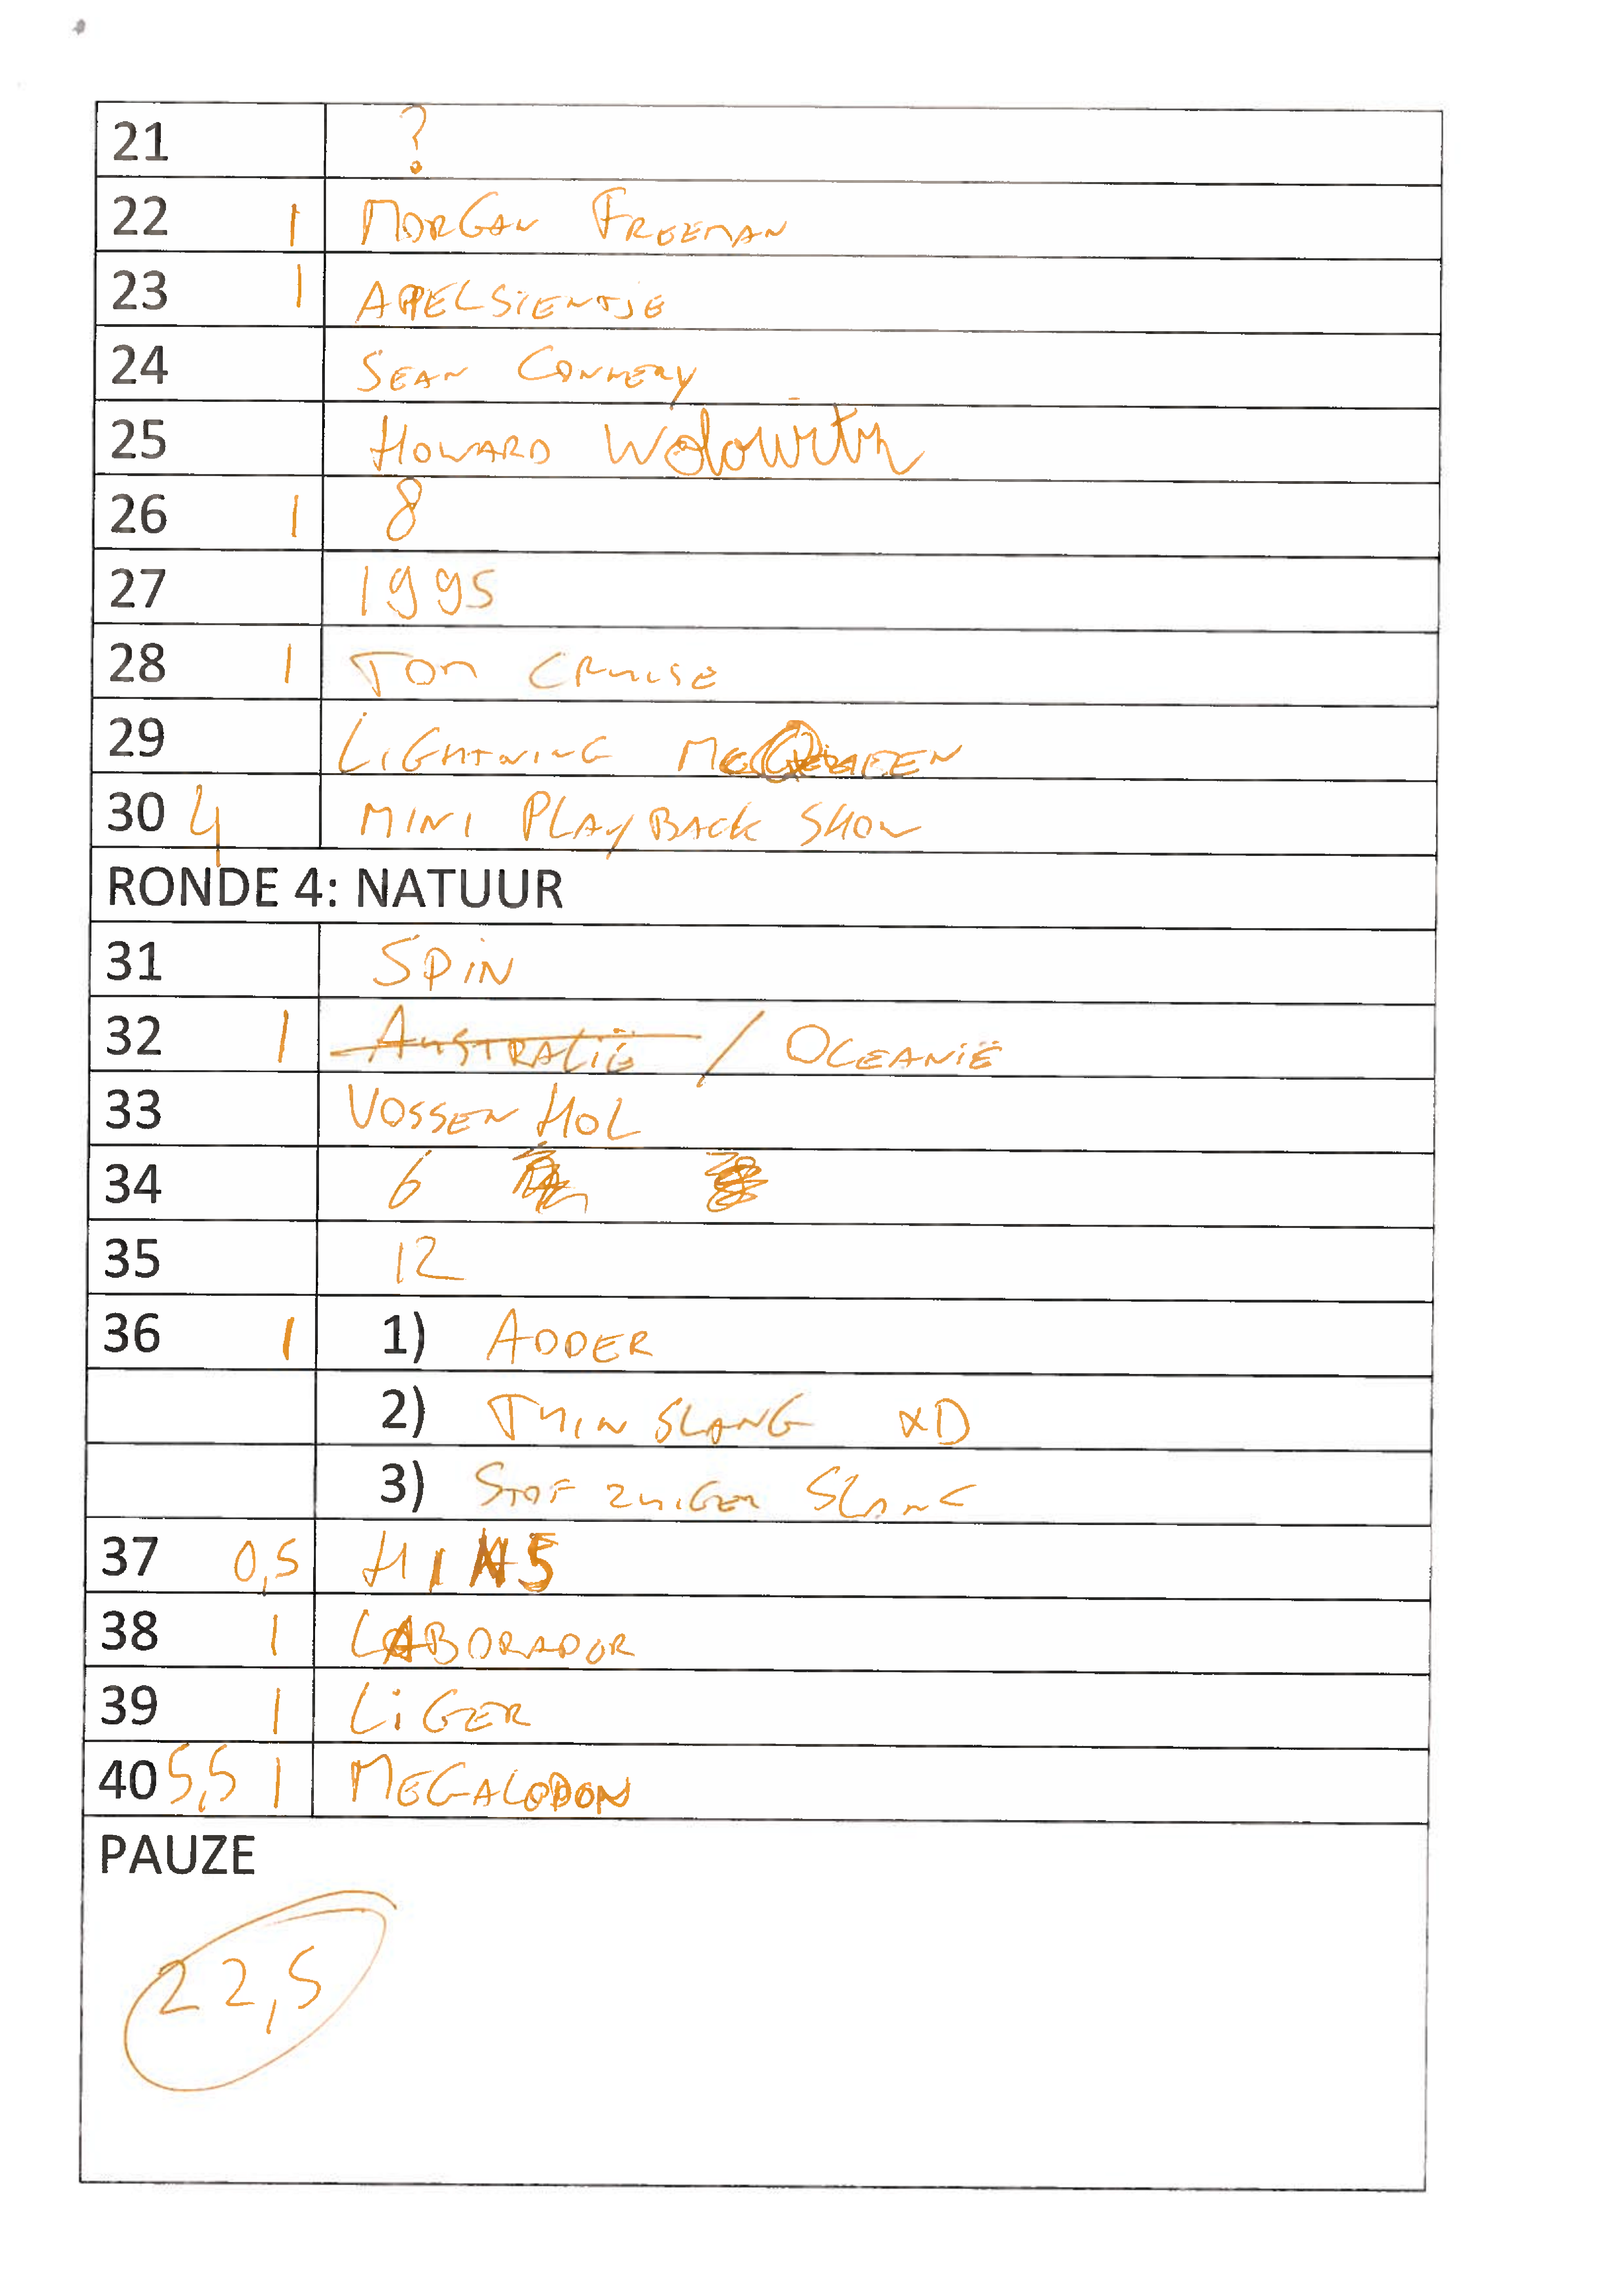 21 ?
22 1 MORGAN FREEMAN
23 1 APPELSIENTJE
24 SEAN CONNERY
25 HOWARD Wolowitz
26 1 8
27 1995
28 1 TOM CRUISE
29 LIGHTNING McQUEEN
30 4 MINI PLAYBACK SHOW
RONDE 4: NATUUR
31 SPIN
32 1 AUSTRALIË / OCEANIË
33 VOSSEN HOL
34 6
35 12
36 1 1) ADDER
2) TUIN SLANG XD
3) STOF ZUIGER SLANG
37 0,5 H1N5
38 1 LABORADOR
39 1 LIGER
40 5,5 1 MEGALODON
PAUZE
22,5